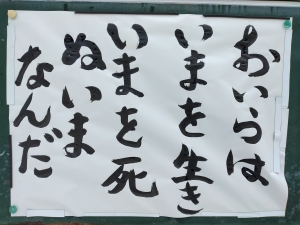 おいらは
いまを生き
いまを死
ぬいま
なんだ